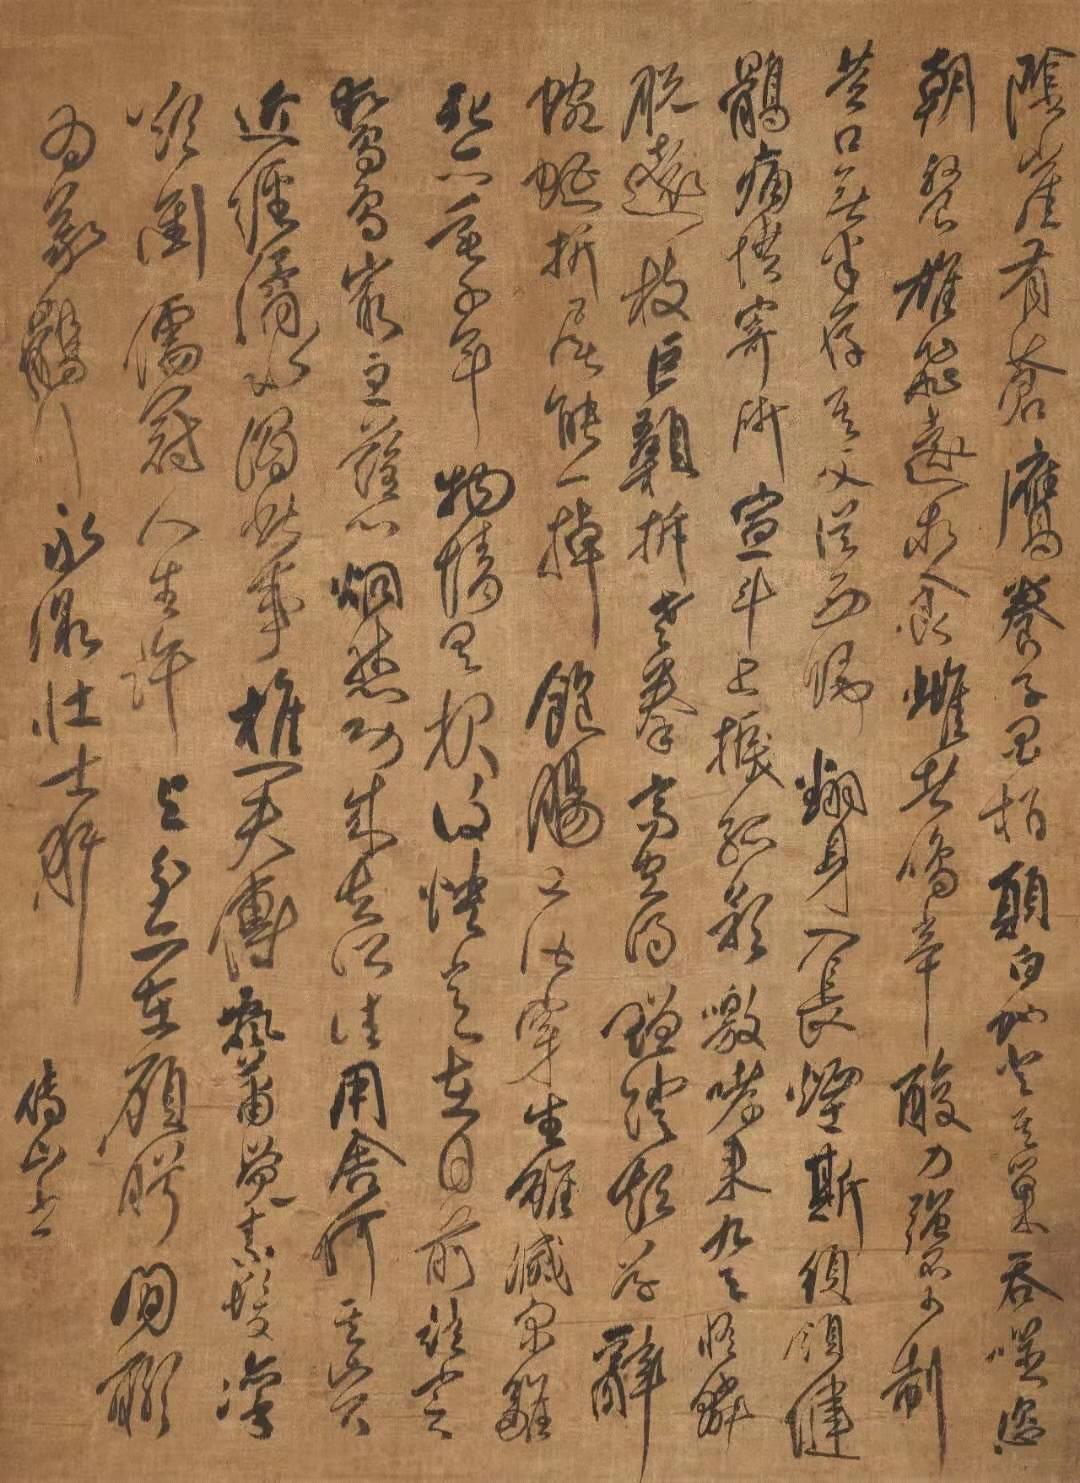 陰崖有蒼鷹養子黑柏顛白蛇登其巢吞噬恣
朝餐雄飛遠求食雌者鳴辛酸力強不可制
黃口無半存其父從西歸翻身入長煙斯須領健
鶻痛憤寄所宣斗上捩孤影噭哮來九天修鱗
脫遠枝巨顙拆老拳高空得蹭蹬短草辭
蜿蜒折尾能一掉飽腸已皆穿生雖滅眾雛
死亦垂千年物情有報復快意貴目前茲實
鷙鳥最急難心炯然功成失所往用舍何其賢
近經潏水湄此事樵夫傳飄蕭覺素髮凜
欲衝儒冠人生許與分亦在顧盼間聊
為義鶻行永激壯士肝 傅山書